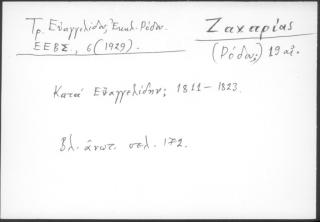 Τρ. Εὐαγγελίδου, Ἐκκλ. Ρόδου.
ΕΕΒΣ, 6 (1929).
Ζαχαρίας
(Ρόδου;) 19 αἰ.
Κατά Εὐαγγελίδην; 1811-1823.
Βλ. ἀνωτ. σελ. 172.